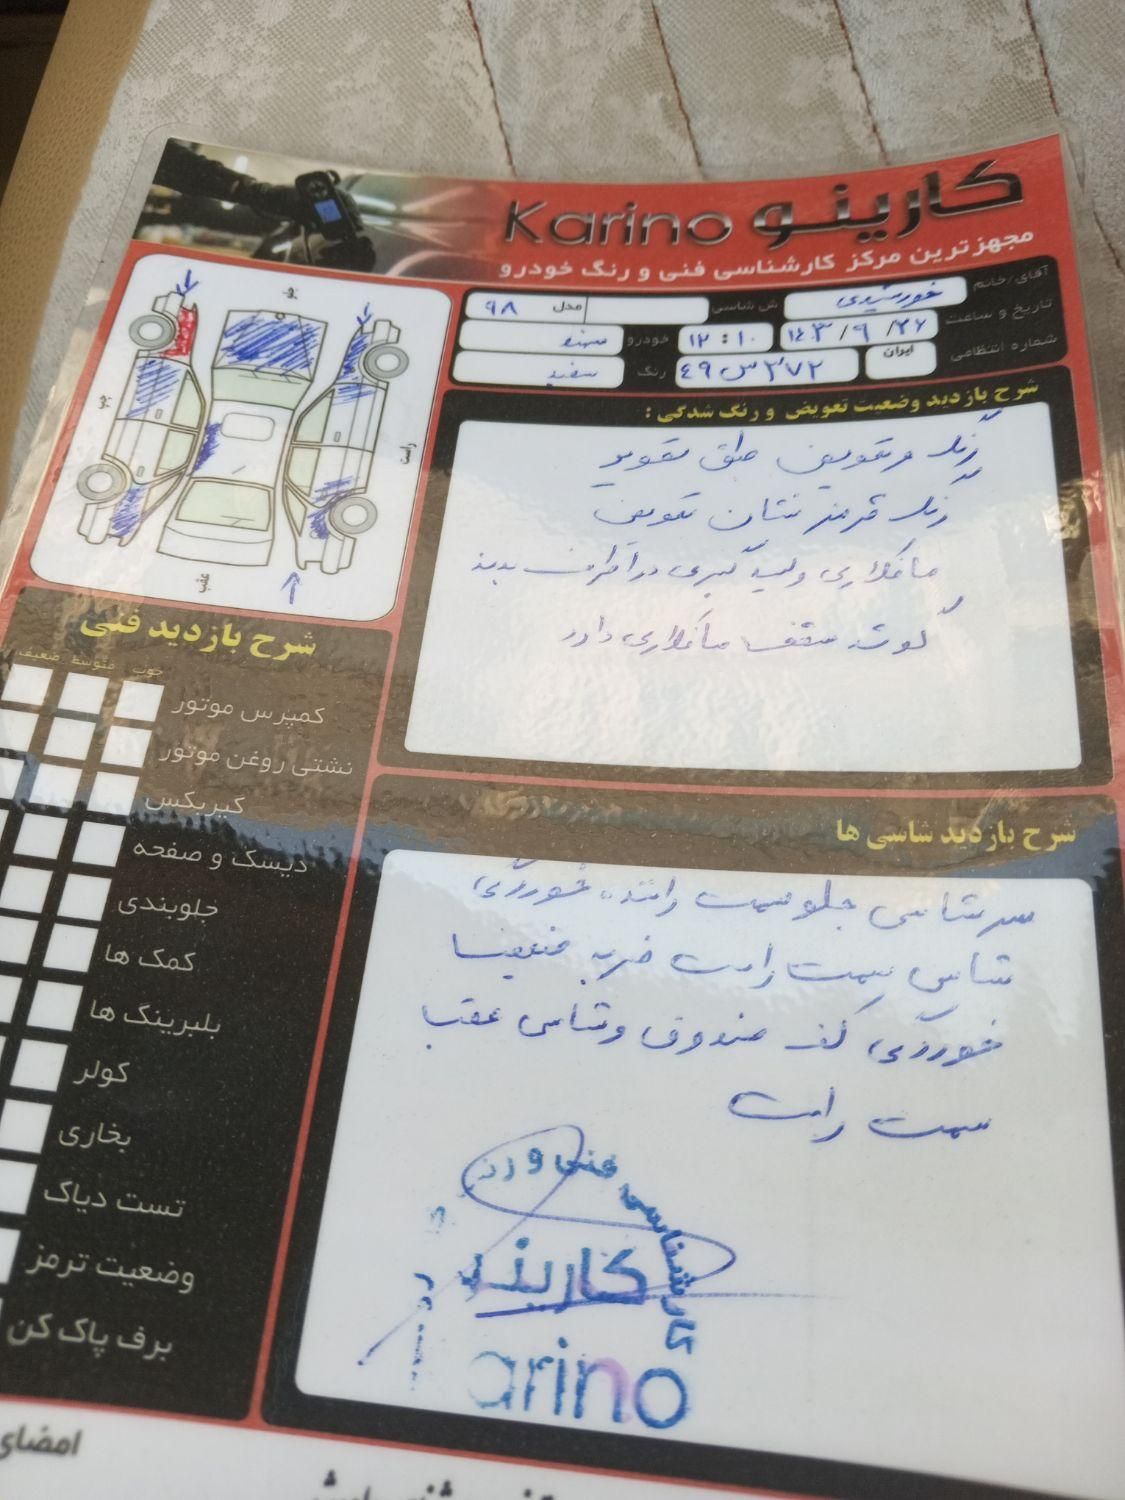 کارینو Karino
مجهزترین مرکز کارشناسی فنی و رنگ خودرو
آقای/خانم خورشیدی ش شاسی مدل ۹۸
تاریخ و ساعت ۱۴۰۳/۹/۲۶ ۱۲:۱۰ خودرو سمند
شماره انتظامی ایران ۳۷۲س۴۹ رنگ سفید
جلو
چپ
راست
عقب
شرح بازدید وضعیت تعویض و رنگ شدگی:
رنگ و تعویض طبق تصویر
رنگ قرمز نشان تعویض
صافکاری و لیسه گیری در اطراف بدنه
گوشه سقف صافکاری دارد
شرح بازدید فنی
خوب متوسط ضعیف
کمپرس موتور
نشتی روغن موتور
گیربکس
دیسک و صفحه
جلوبندی
کمک ها
بلبرینگ ها
کولر
بخاری
تست دیاگ
وضعیت ترمز
برف پاک کن
شرح بازدید شاسی ها
سرشاسی جلو سمت راننده خوردگی
شاسی سمت راست ضربه ضعیف
خوردگی کف صندوق و شاسی عقب
سمت راست
کارشناسی فنی و رنگ
کارینو
arino
امضای